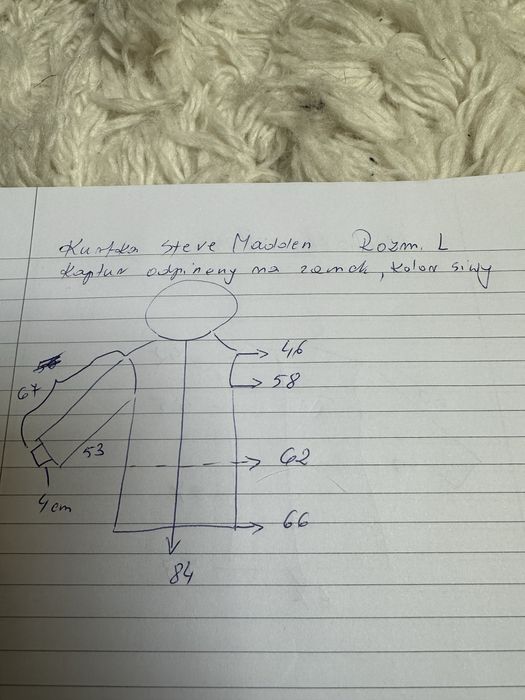 Kurtka Steve Madden Rozm. L
Kaptur odpineny na zamek, kolor siwy
46
67
58
53
62
4 cm
66
84